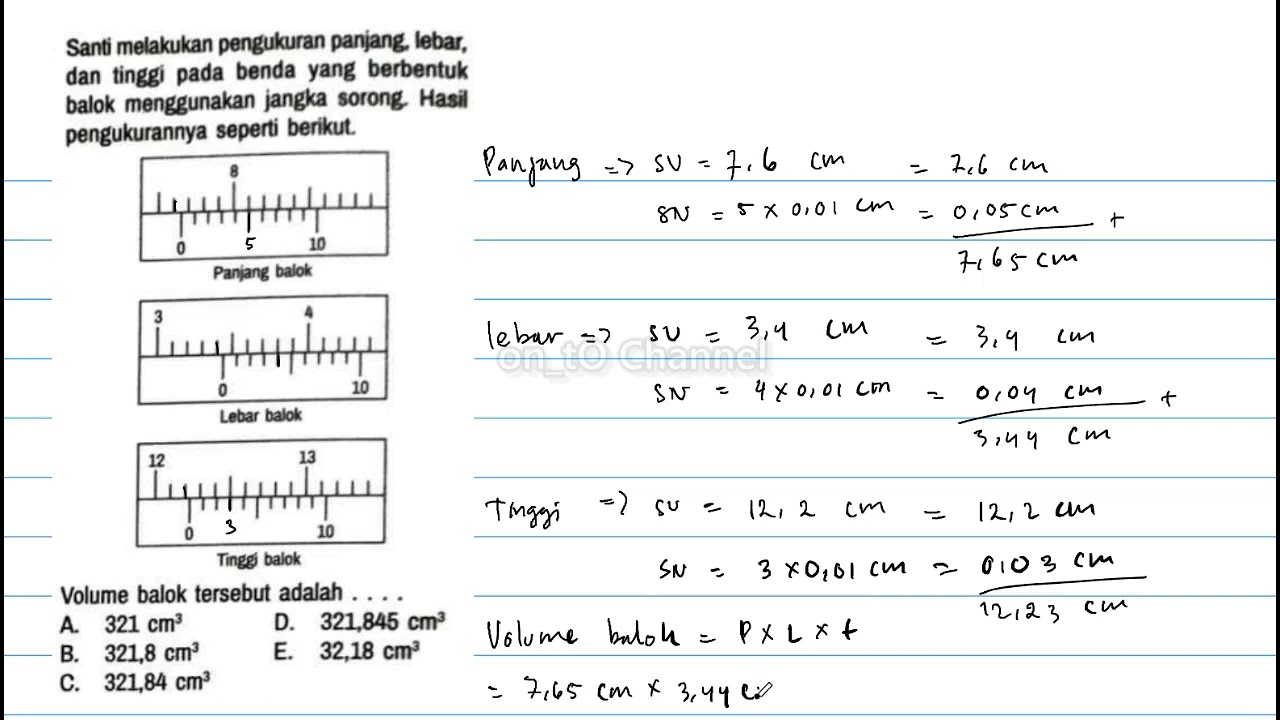 Santi melakukan pengukuran panjang, lebar,
dan tinggi pada benda yang berbentuk
balok menggunakan jangka sorong. Hasil
pengukurannya seperti berikut.
8
0 5 10
Panjang balok
3 4
0 10
Lebar balok
12 13
0 3 10
Tinggi balok
Volume balok tersebut adalah . . . .
A. 321 cm³
B. 321,8 cm³
C. 321,84 cm³
D. 321,845 cm³
E. 32,18 cm³
Panjang => SU = 7,6 cm = 7,6 cm
SN = 5 × 0,01 cm = 0,05 cm +
7,65 cm
lebar => SU = 3,4 cm = 3,4 cm
on_tO Channel
SN = 4 × 0,01 cm = 0,04 cm +
3,44 cm
Tinggi => SU = 12,2 cm = 12,2 cm
SN = 3 × 0,01 cm = 0,03 cm
12,23 cm
Volume balok = P × L × t
= 7,65 cm × 3,44 c